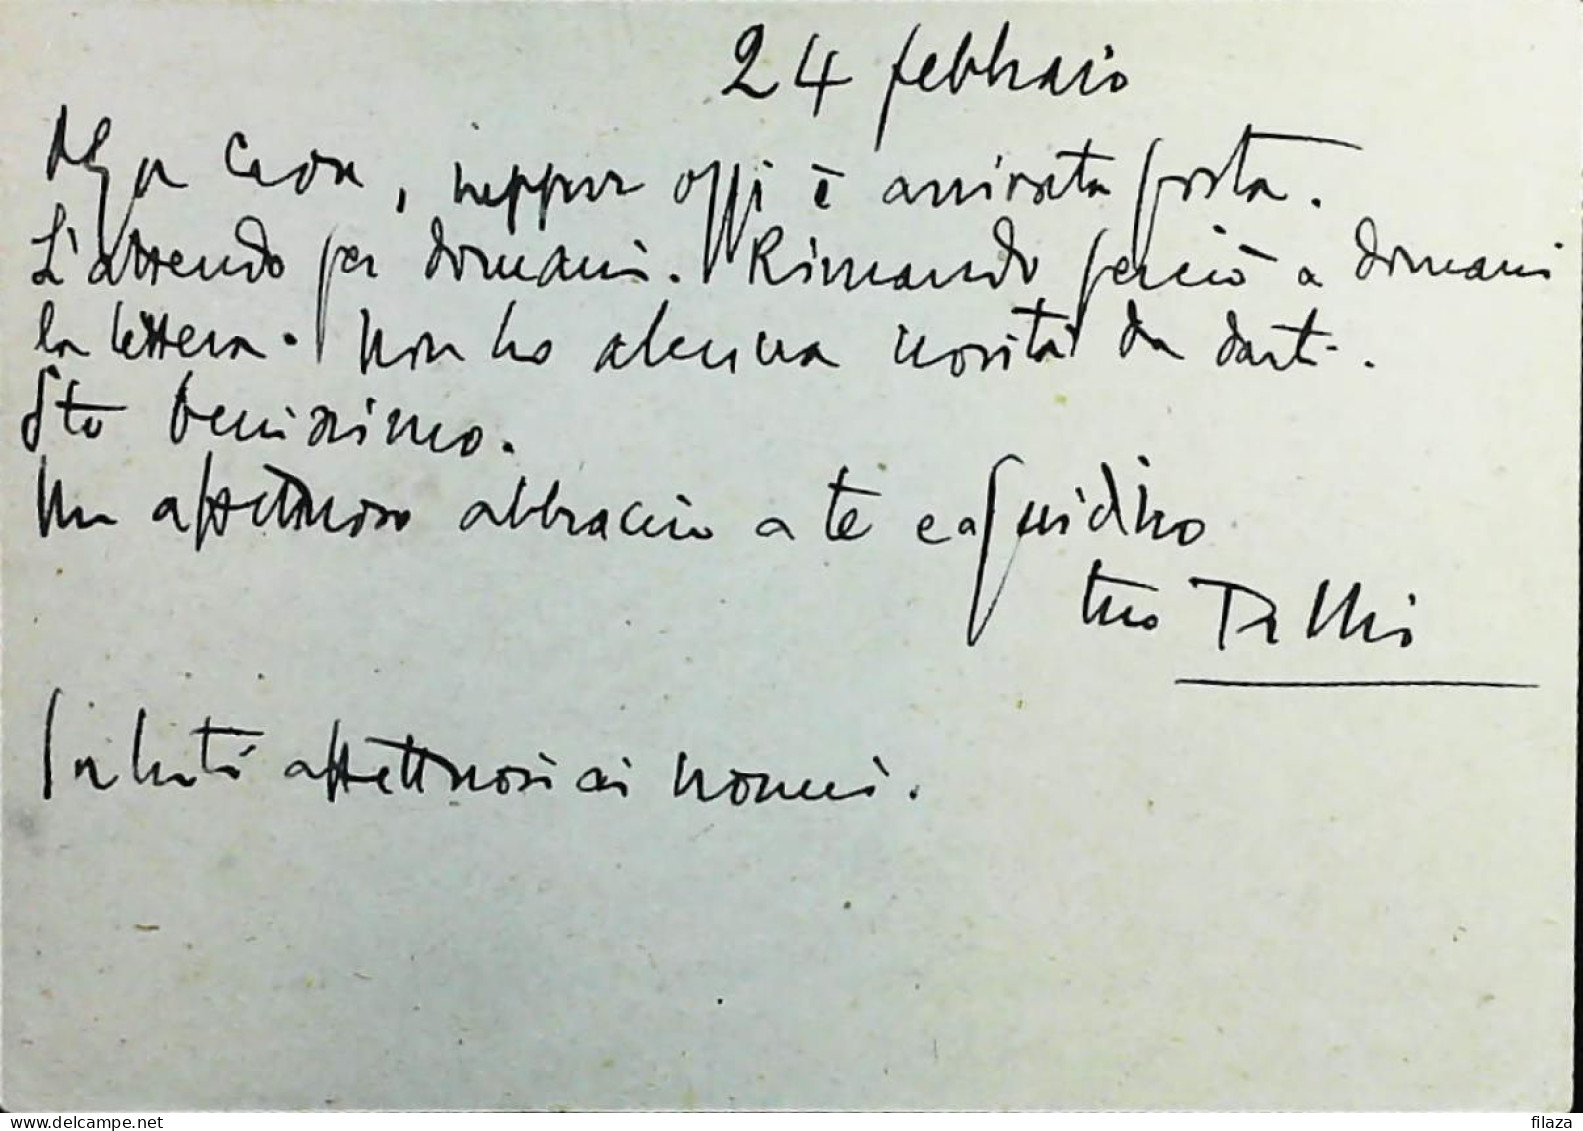 24 febbraio
Olga cara, neppur oggi è arrivata posta.
L'attendo per domani. Rimando perciò a domani
la lettera. Non ho alcuna novità da darti.
Sto benissimo.
Un affettuoso abbraccio a te e a Guidino
tuo
Saluti affettuosi ai nonni.
filaza